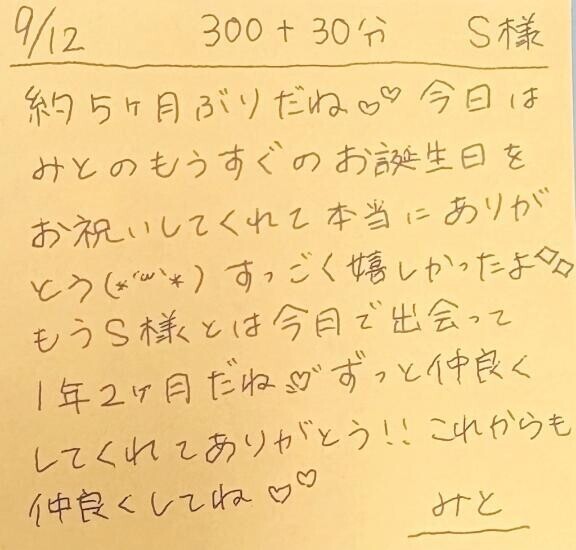 9/12 300+30分 S様
約5ヶ月ぶりだね♡♡ 今日は
みとのもうすぐのお誕生日を
お祝いしてくれて本当にありが
とう(*´꒳`*) すっごく嬉しかったよ◇◇
もうS様とは今月で出会って
1年2ヶ月だね♡ ずっと仲良く
してくれてありがとう!! これからも
仲良くしてね♡♡
みと